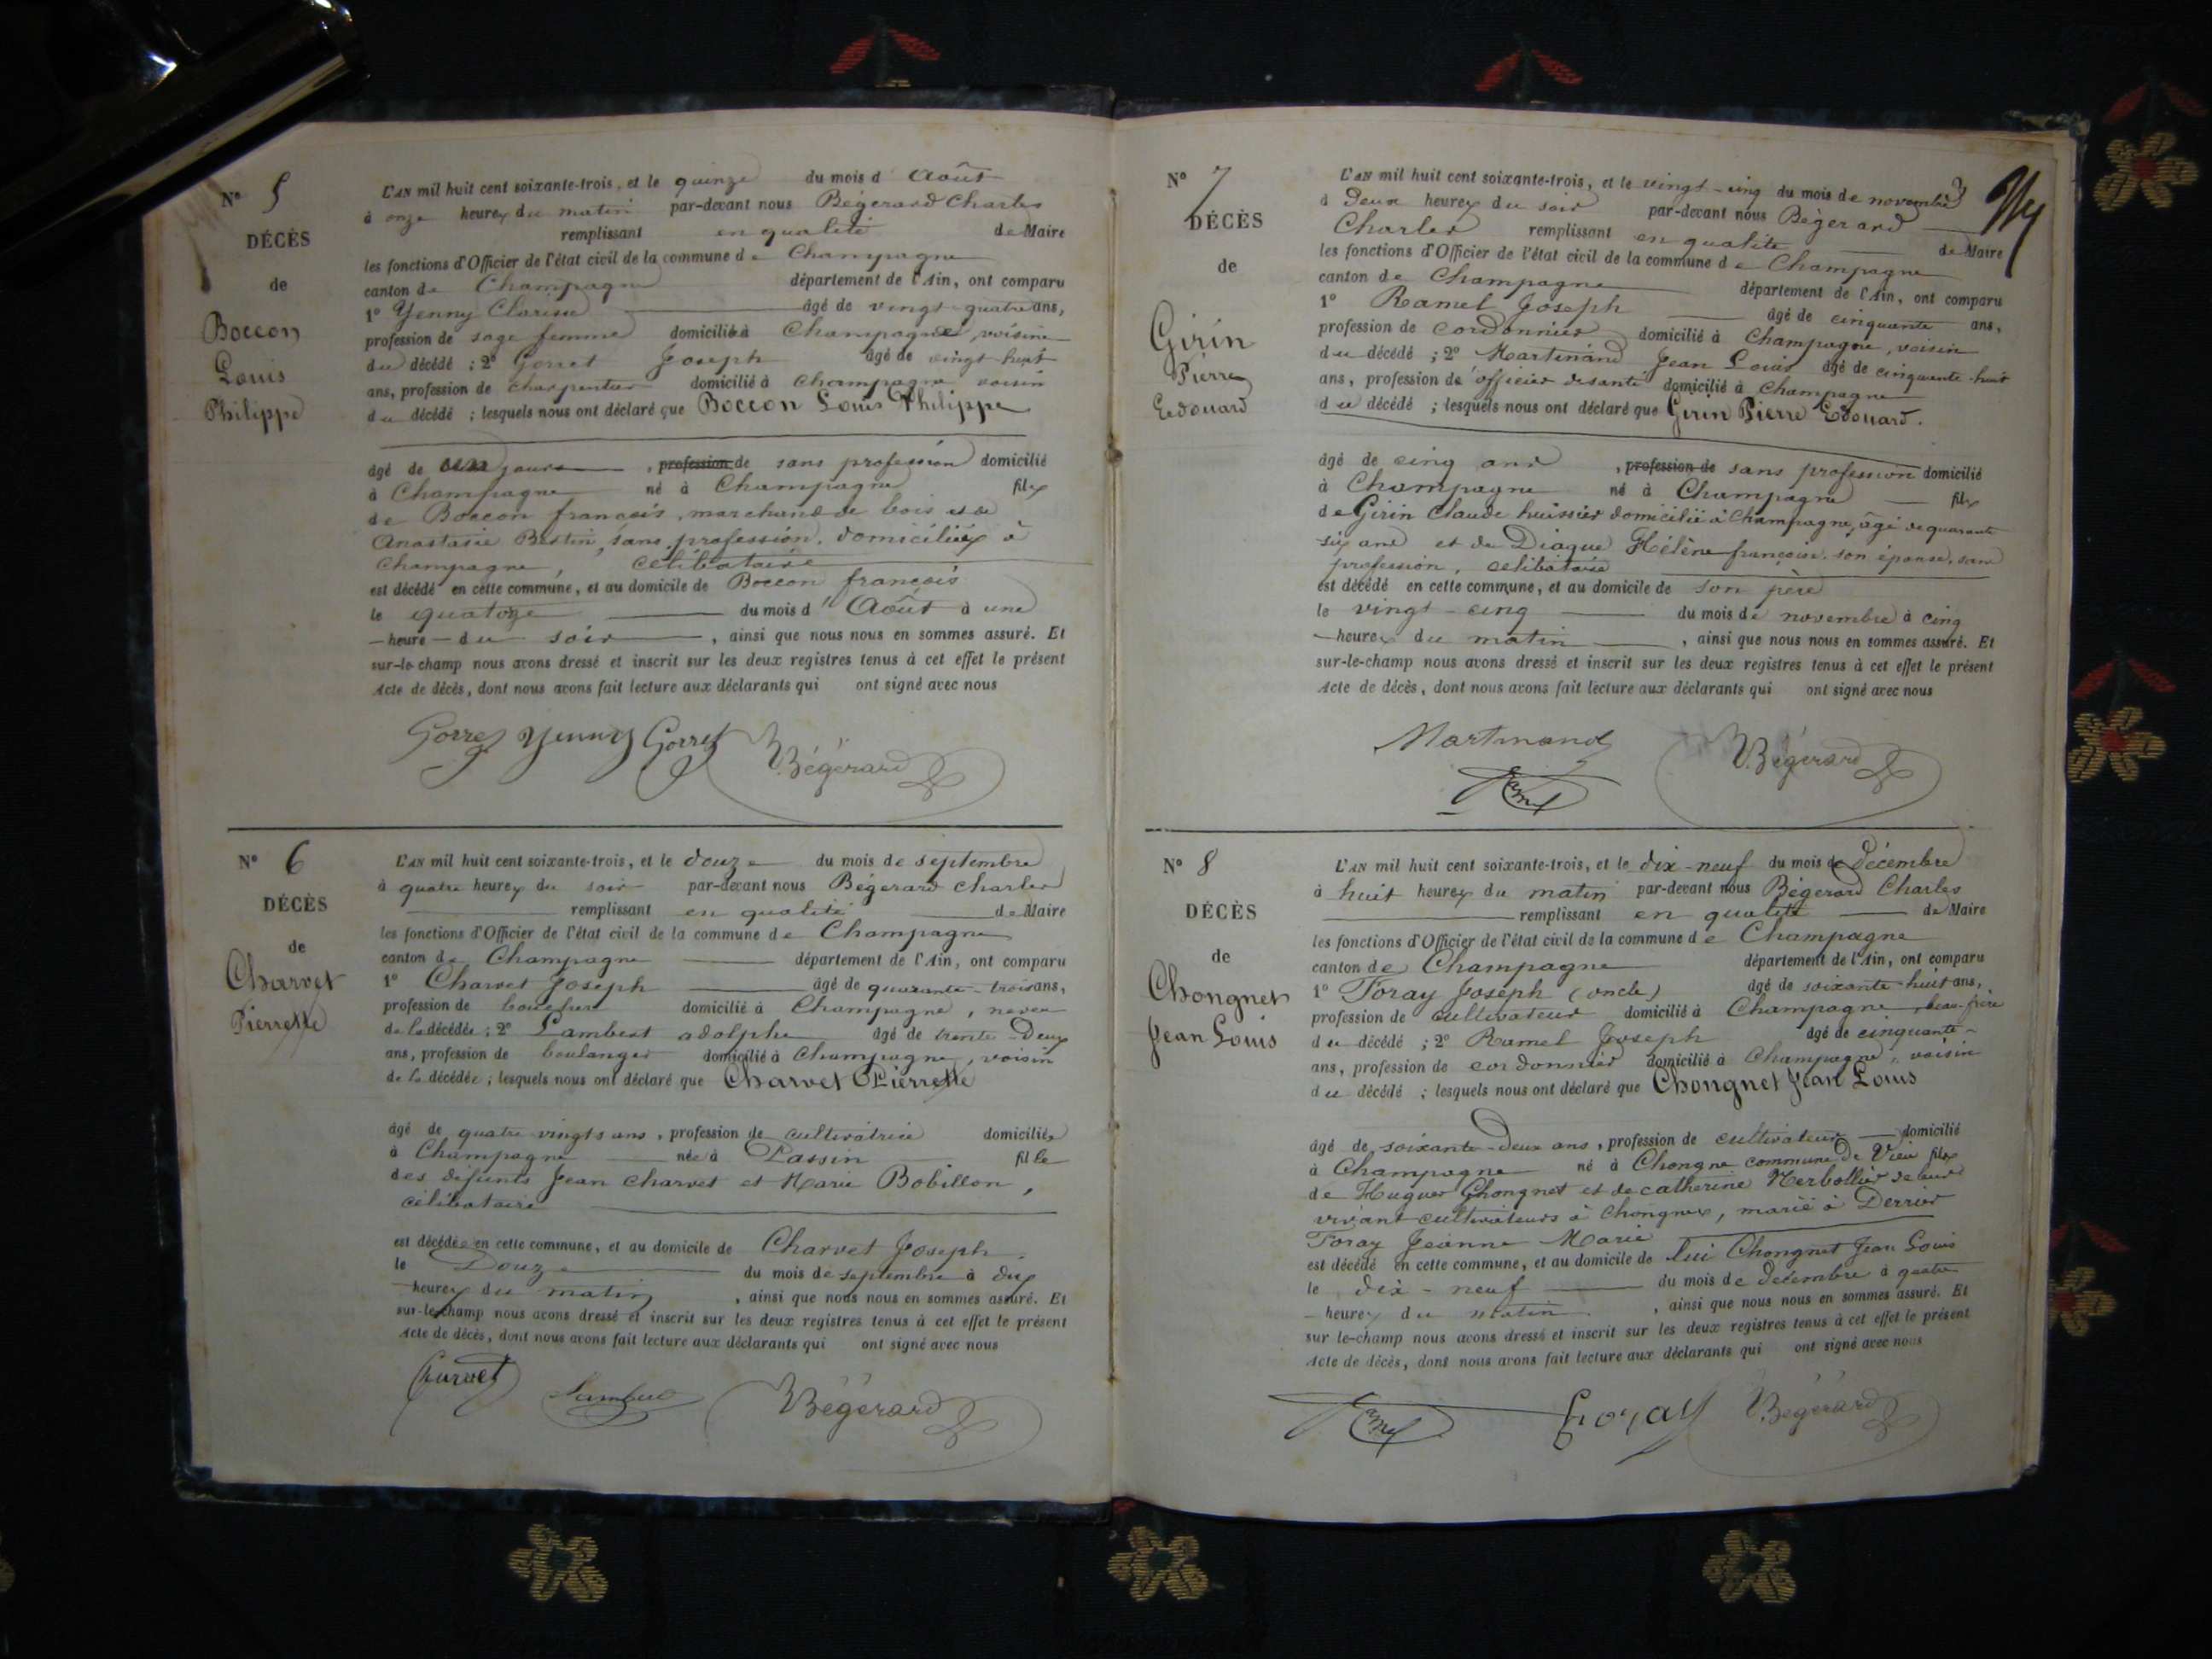 N° 5
DÉCÈS
de
Boccon
Louis
Philippe
L'AN mil huit cent soixante-trois, et le quinze du mois d'Août
à onze heures du matin par-devant nous Bégerard Charles
remplissant en qualité de Maire
les fonctions d'Officier de l'état civil de la commune de Champagne
canton de Champagne département de l'Ain, ont comparu
1° Yenny Clarisse âgé de vingt-quatre ans,
profession de sage femme domiciliée à Champagne, voisine
du décédé ; 2° Gorret Joseph âgé de vingt-huit
ans, profession de charpentier domicilié à Champagne voisin
du décédé ; lesquels nous ont déclaré que Boccon Louis Philippe
âgé de un jours, profession de sans profession domicilié
à Champagne né à Champagne fils
de Boccon françois, marchand de bois et de
Anastasie Bestin, sans profession, domiciliés à
Champagne, célibataire
est décédé en cette commune, et au domicile de Boccon françois
le quatorze du mois d'Août à une
heure du soir, ainsi que nous nous en sommes assuré. Et
sur-le-champ nous avons dressé et inscrit sur les deux registres tenus à cet effet le présent
Acte de décès, dont nous avons fait lecture aux déclarants qui ont signé avec nous
Gorret Yenny Gorret Bégerard
N° 6
DÉCÈS
de
Charvet
Pierrette
L'AN mil huit cent soixante-trois, et le douze du mois de septembre
à quatre heures du soir par-devant nous Bégerard Charles
remplissant en qualité de Maire
les fonctions d'Officier de l'état civil de la commune de Champagne
canton de Champagne département de l'Ain, ont comparu
1° Charvet Joseph âgé de quarante-trois ans,
profession de domicilié à Champagne, neveu
de la décédée ; 2° Lambert adolphe âgé de trente-Deux
ans, profession de boulanger domicilié à Champagne, voisin
de la décédée ; lesquels nous ont déclaré que Charvet Pierrette
âgé de quatre vingts ans, profession de cultivatrice domiciliée
à Champagne née à Passin fille
des défunts Jean Charvet et Marie Bobillon,
célibataire
est décédée en cette commune, et au domicile de Charvet Joseph
le Douze du mois de septembre à dix
heures du matin, ainsi que nous nous en sommes assuré. Et
sur-le-champ nous avons dressé et inscrit sur les deux registres tenus à cet effet le présent
Acte de décès, dont nous avons fait lecture aux déclarants qui ont signé avec nous
Charvet Lambert Bégerard
N° 7
DÉCÈS
de
Girin
Pierre
Edouard
L'AN mil huit cent soixante-trois, et le vingt-cinq du mois de novembre
à Deux heures du soir par-devant nous Bégerard
Charles remplissant en qualité de Maire
les fonctions d'Officier de l'état civil de la commune de Champagne
canton de Champagne département de l'Ain, ont comparu
1° Ramel Joseph âgé de cinquante ans,
profession de cordonnier domicilié à Champagne, voisin
du décédé ; 2° Martinand Jean Louis âgé de cinquante-huit
ans, profession de officier de santé domicilié à Champagne
du décédé ; lesquels nous ont déclaré que Girin Pierre Edouard.
âgé de cinq ans, profession de sans profession domicilié
à Champagne né à Champagne fils
de Girin Claude huissier domicilié à Champagne, âgé de quarante
six ans et de Diaque Hélène françoise, son épouse, sans
profession, célibataire
est décédé en cette commune, et au domicile de son père
le vingt-cinq du mois de novembre à cinq
heures du matin, ainsi que nous nous en sommes assuré. Et
sur-le-champ nous avons dressé et inscrit sur les deux registres tenus à cet effet le présent
Acte de décès, dont nous avons fait lecture aux déclarants qui ont signé avec nous
Martinand Bégerard
Ramel
N° 8
DÉCÈS
de
Chongnet
Jean Louis
L'AN mil huit cent soixante-trois, et le dix-neuf du mois de Décembre
à huit heures du matin par-devant nous Bégerard Charles
remplissant en qualité de Maire
les fonctions d'Officier de l'état civil de la commune de Champagne
canton de Champagne département de l'Ain, ont comparu
1° Foray Joseph (oncle) âgé de soixante-huit ans,
profession de cultivateur domicilié à Champagne, beau-frère
du décédé ; 2° Ramel Joseph âgé de cinquante
ans, profession de cordonnier domicilié à Champagne, voisin
du décédé ; lesquels nous ont déclaré que Chongnet Jean Louis
âgé de soixante-Deux ans, profession de cultivateur domicilié
à Champagne né à Chongne commune de Vieu fils
de Hugues Chongnet et de catherine Merbollier de leur
vivant cultivateurs à Chongnes, marié à Derrier
Foray Jeanne Marie
est décédé en cette commune, et au domicile de lui Chongnet Jean Louis
le dix-neuf du mois de décembre à quatre
heures du matin, ainsi que nous nous en sommes assuré. Et
sur le-champ nous avons dressé et inscrit sur les deux registres tenus à cet effet le présent
Acte de décès, dont nous avons fait lecture aux déclarants qui ont signé avec nous
Ramel Foray Bégerard